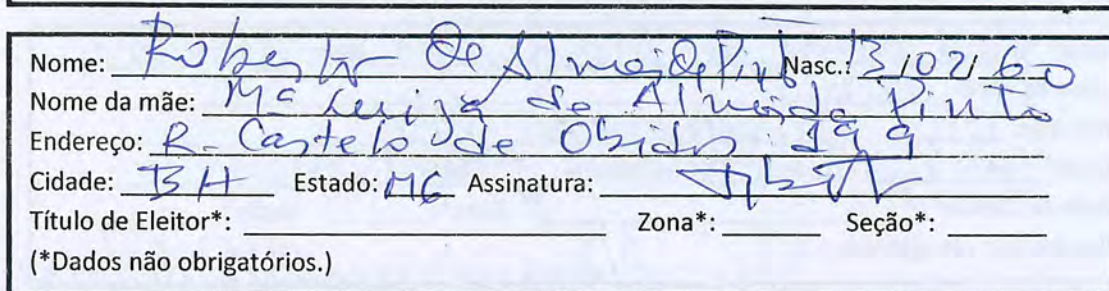 Nome: Roberto de Almeida Pinto Nasc.: 3/02/60
Nome da mãe: Mª Luiza de Almeida Pinto
Endereço: R. Castelo de Obidos 199
Cidade: BH Estado: MG Assinatura:
Título de Eleitor*: Zona*: Seção*:
(*Dados não obrigatórios.)